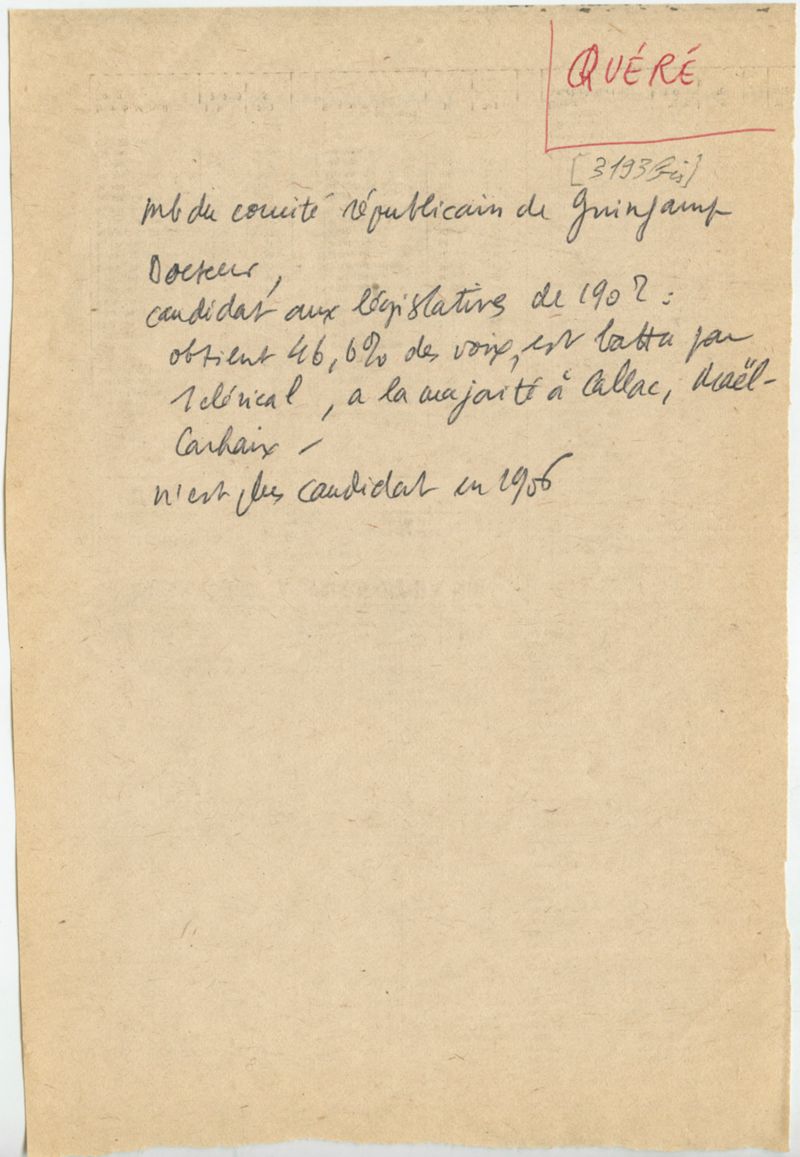 QUÉRÉ
[3193bis]
mb du comité républicain de Guingamp
Docteur,
candidat aux législatives de 1902 :
obtient 46,6% des voix, est battu par
1 clérical, a la majorité à Callac, Maël-
Carhaix -
n'est plus candidat en 1906